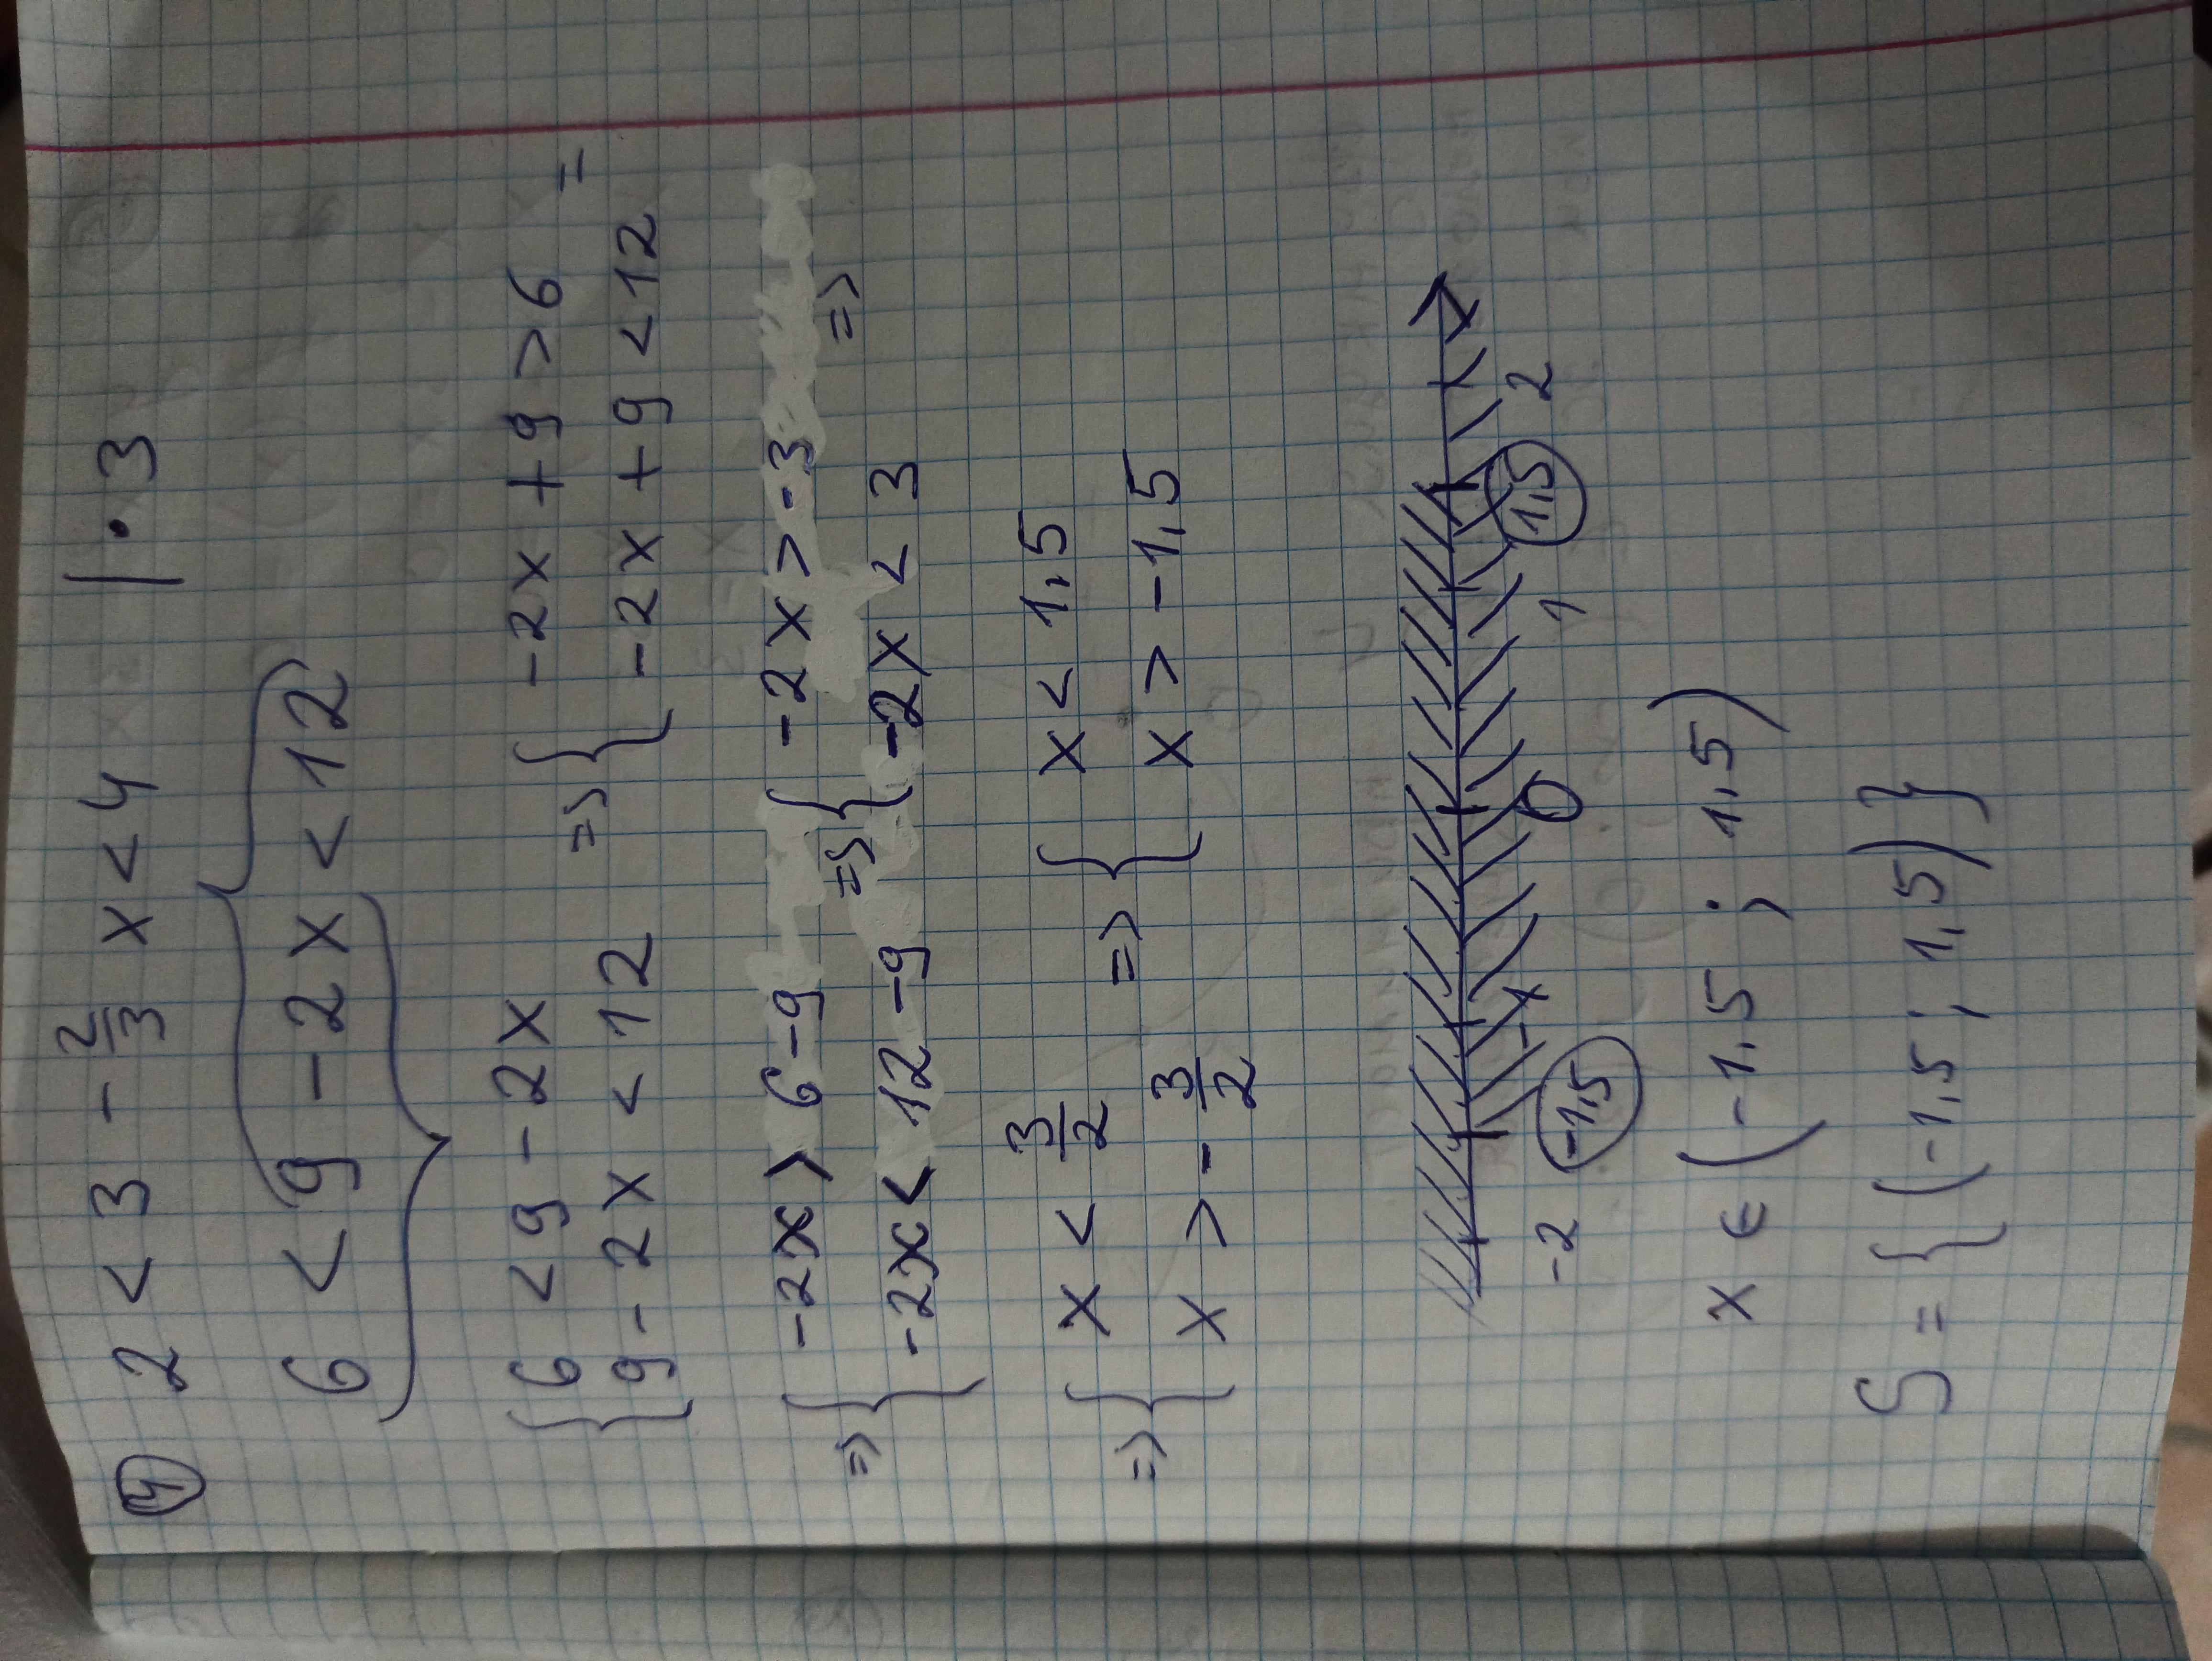 ④ 2 < 3 - 2/3 x < 4 | · 3
6 < 9 - 2x < 12
{ 6 < 9 - 2x => { -2x + 9 > 6 =
9 - 2x < 12 -2x + 9 < 12
=> { -2x > 6 - 9 => { -2x > -3 =>
-2x < 12 - 9 -2x < 3
=> { x < 3/2 => { x < 1,5
x > - 3/2 x > -1,5
-2 -1,5 -1 0 1 1,5 2
x ∈ (-1,5 ; 1,5)
S = {(-1,5 ; 1,5)}